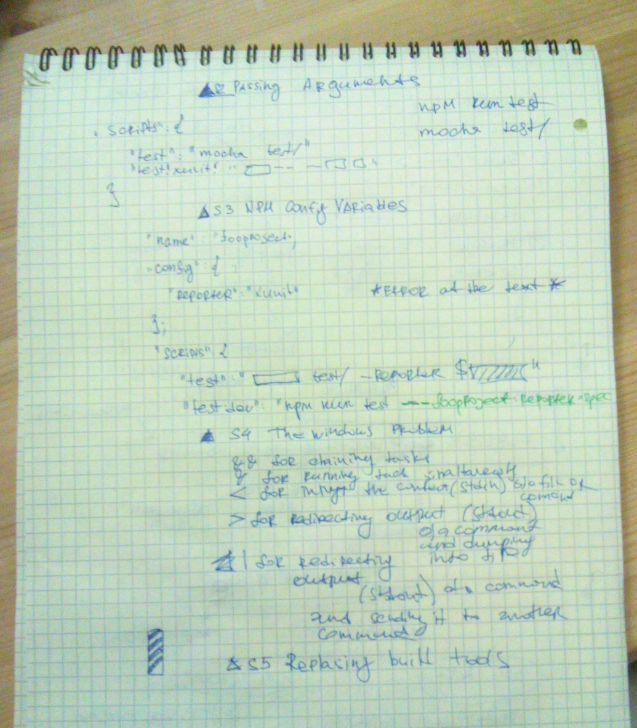 Passing Arguments
npm run test
mocha test/
"scripts": {
"test": "mocha test/"
"test:xunit" " -- -
}
S3 NPM Config Variables
"name": "3ooproject",
"config" {
"REPORTER": "xunit" *ERROR at the test *
};
"scripts" {
"test": " test/ -REPORTER $ "
"test dev": "npm run test --3ooproject:REPORTER=spec
S4 The windows Problem
&& for chaining tasks
& for running
< for the content (stdin) of a file or
comand
> for redirecting output (stdout)
of a command
and dumping
into
| for redirecting
output
(stdout) of a command
and sending it to another
command
S5 Replasing built tools